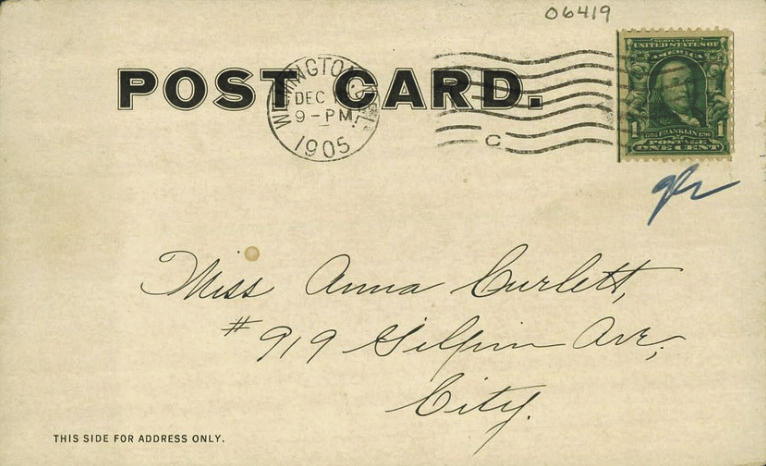 06419
POST CARD.
WILMINGTON, DEL.
DEC 1
9-PM
1905
C
SERIES 1902
UNITED STATES OF
AMERICA
1 1
FRANKLIN
POSTAGE
ONE CENT
Miss Anna Curlett,
#919 Gilpin Ave,
City.
THIS SIDE FOR ADDRESS ONLY.